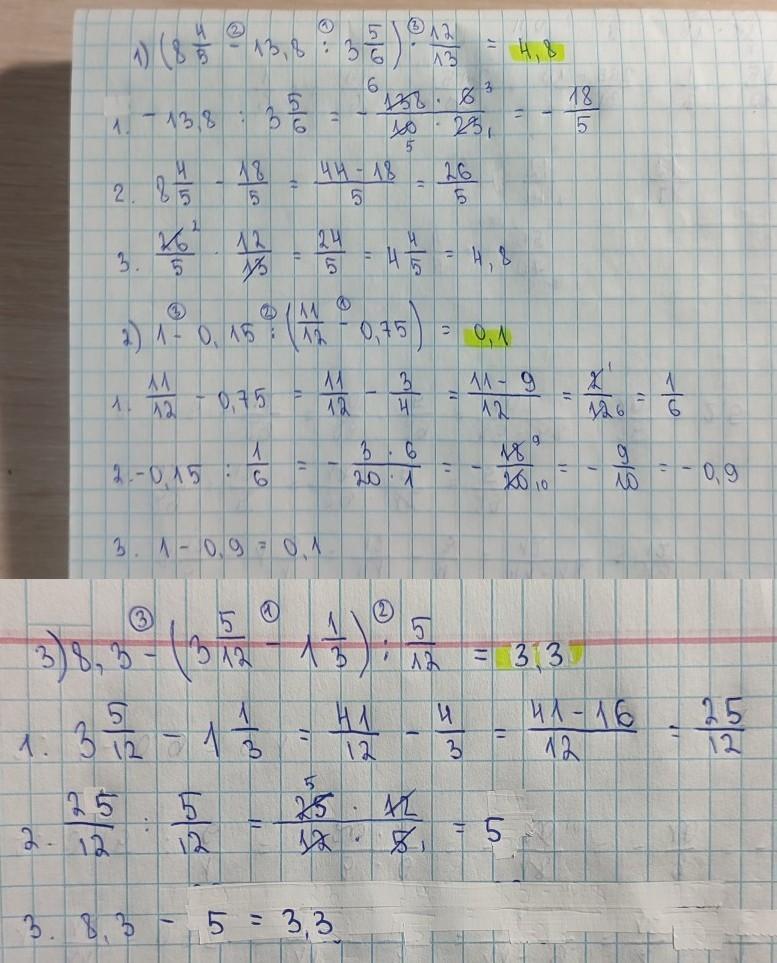 1) (8 4/5 - 13,8 : 3 5/6) · 12/13 = 4,8
1. -13,8 : 3 5/6 = - 138 · 6 / 10 · 23 = - 18/5
2. 8 4/5 - 18/5 = 44-18/5 = 26/5
3. 26/5 · 12/13 = 24/5 = 4 4/5 = 4,8
2) 1 - 0,15 : (11/12 - 0,75) = 0,1
1. 11/12 - 0,75 = 11/12 - 3/4 = 11-9/12 = 2/12 = 1/6
2. -0,15 : 1/6 = - 3·6/20·1 = - 18/20 = - 9/10 = -0,9
3. 1 - 0,9 = 0,1
3) 8,3 - (3 5/12 - 1 1/3) : 5/12 = 3,3
1. 3 5/12 - 1 1/3 = 41/12 - 4/3 = 41-16/12 = 25/12
2. 25/12 : 5/12 = 25 · 12 / 12 · 5 = 5
3. 8,3 - 5 = 3,3